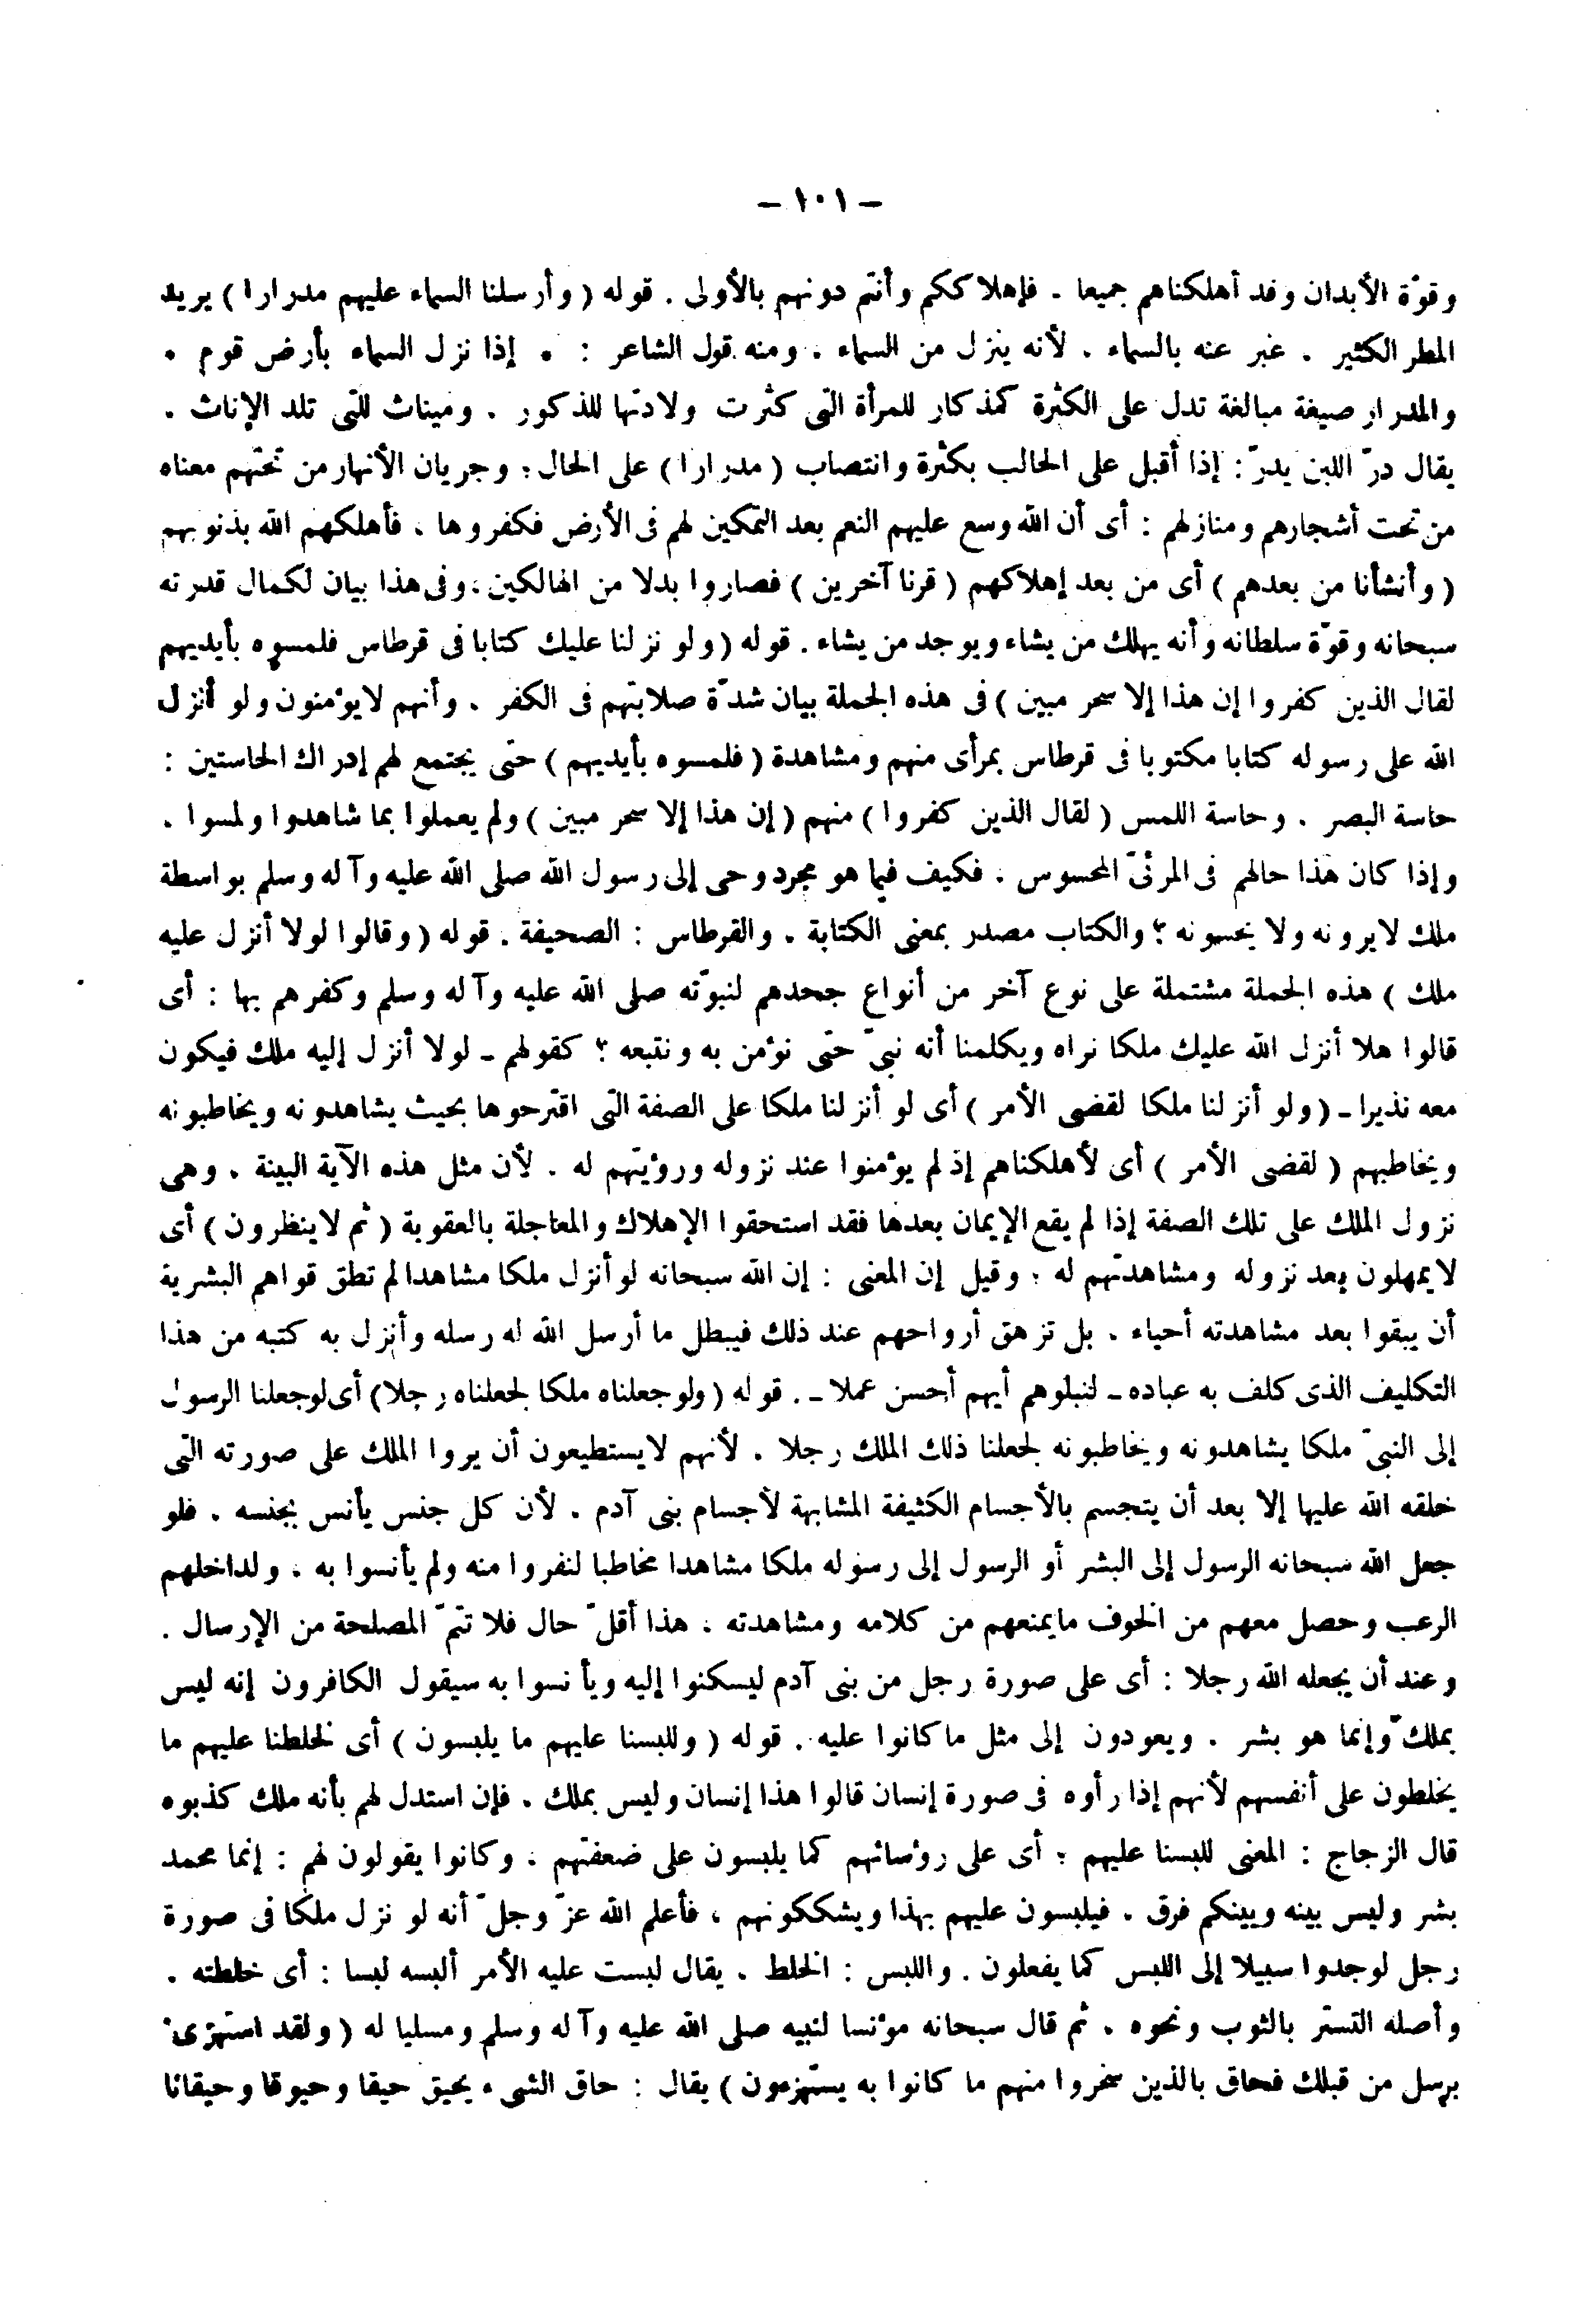 – ١٠١ –
وقوّة الأبدان وقد أهلكناهم جميعا . فإهلاككم وأنتم دونهم بالأولى . قوله ( وأرسلنا السماء عليهم مدرارا ) يريد
المطر الكثير . عبر عنه بالسماء . لأنه ينزل من السماء ، ومنه قول الشاعر : • إذا نزل السماء بأرض قوم •
والمدرار صيغة مبالغة تدل على الكثرة كمذكار للمرأة التى كثرت ولادتها للذكور . وميناث للتى تلد الإناث .
يقال درّ اللبن يدرّ : إذا أقبل على الحالب بكثرة وانتصاب ( مدرارا ) على الحال ؛ وجريان الأنهار من تحتهم معناه
من تحت أشجارهم ومنازلهم : أى أن الله وسع عليهم النعم بعد التمكين لهم فى الأرض فكفروها ، فأهلكهم الله بذنوبهم
( وأنشأنا من بعدهم ) أى من بعد إهلاكهم ( قرنا آخرين ) فصاروا بدلا من الهالكين ، وفى هذا بيان لكمال قدرته
سبحانه وقوّة سلطانه وأنه يهلك من يشاء ويوجد من يشاء . قوله ( ولو نزلنا عليك كتابا فى قرطاس فلمسوه بأيديهم
لقال الذين كفروا إن هذا إلا سحر مبين ) فى هذه الجملة بيان شدّة صلابتهم فى الكفر . وأنهم لايؤمنون ولو أنزل
الله على رسوله كتابا مكتوبا فى قرطاس بمرأى منهم ومشاهدة ( فلمسوه بأيديهم ) حتى يجتمع لهم إدراك الحاستين :
حاسة البصر . وحاسة اللمس ( لقال الذين كفروا ) منهم ( إن هذا إلا سحر مبين ) ولم يعملوا بما شاهدوا ولمسوا .
وإذا كان هذا حالهم فى المرئىّ المحسوس ، فكيف فيما هو مجرد وحى إلى رسول الله صلى الله عليه وآله وسلم بواسطة
ملك لايرونه ولا يحسونه ؟ والكتاب مصدر بمعنى الكتابة . والقرطاس : الصحيفة . قوله ( وقالوا لولا أنزل عليه
ملك ) هذه الجملة مشتملة على نوع آخر من أنواع جحدهم لنبوّته صلى الله عليه وآله وسلم وكفرهم بها : أى
قالوا هلا أنزل الله عليك ملكا نراه ويكلمنا أنه نبىّ حتى نؤمن به ونتبعه ؟ كقولهم ـ لولا أنزل إليه ملك فيكون
معه نذيرا ـ ( ولو أنزلنا ملكا لقضى الأمر ) أى لو أنزلنا ملكا على الصفة التى اقترحوها بحيث يشاهدونه ويخاطبونه
ويخاطبهم ( لقضى الأمر ) أى لأهلكناهم إذ لم يؤمنوا عند نزوله ورؤيتهم له . لأن مثل هذه الآية البينة . وهى
نزول الملك على تلك الصفة إذا لم يقع الإيمان بعدها فقد استحقوا الإهلاك والمعاجلة بالعقوبة ( ثم لاينظرون ) أى
لايمهلون بعد نزوله ومشاهدتهم له ؛ وقيل إن المعنى : إن الله سبحانه لو أنزل ملكا مشاهدا لم تطق قواهم البشرية
أن يبقوا بعد مشاهدته أحياء . بل تزهق أرواحهم عند ذلك فيبطل ما أرسل الله له رسله وأنزل به كتبه من هذا
التكليف الذى كلف به عباده ـ لنبلوهم أيهم أحسن عملا ـ . قوله ( ولو جعلناه ملكا لجعلناه رجلا ) أى لوجعلنا الرسول
إلى النبىّ ملكا يشاهدونه ويخاطبونه لجعلنا ذلك الملك رجلا . لأنهم لايستطيعون أن يروا الملك على صورته التى
خلقه الله عليها إلا بعد أن يتجسم بالأجسام الكثيفة المشابهة لأجسام بنى آدم . لأن كل جنس يأنس بجنسه . فلو
جعل الله سبحانه الرسول إلى البشر أو الرسول إلى رسوله ملكا مشاهدا مخاطبا لنفروا منه ولم يأنسوا به ، ولداخلهم
الرعب وحصل معهم من الخوف مايمنعهم من كلامه ومشاهدته ، هذا أقلّ حال فلا تتمّ المصلحة من الإرسال .
وعند أن يجعله الله رجلا : أى على صورة رجل من بنى آدم ليسكنوا إليه ويأنسوا به سيقول الكافرون إنه ليس
بملك وإنما هو بشر . ويعودون إلى مثل ماكانوا عليه . قوله ( وللبسنا عليهم ما يلبسون ) أى لخلطنا عليهم ما
يخلطون على أنفسهم لأنهم إذا رأوه فى صورة إنسان قالوا هذا إنسان وليس بملك . فإن استدل لهم بأنه ملك كذبوه
قال الزجاج : المعنى للبسنا عليهم ؛ أى على رؤسائهم كما يلبسون على ضعفتهم ، وكانوا يقولون لهم : إنما محمد
بشر وليس بينه وبينكم فرق . فيلبسون عليهم بهذا ويشككونهم ، فأعلم الله عزّ وجلّ أنه لو نزل ملكا فى صورة
رجل لوجدوا سبيلا إلى اللبس كما يفعلون . واللبس : الخلط . يقال لبست عليه الأمر ألبسه لبسا : أى خلطته .
وأصله التستر بالثوب ونحوه . ثم قال سبحانه مؤنسا لنبيه صلى الله عليه وآله وسلم ومسليا له ( ولقد استهزئ
برسل من قبلك فحاق بالذين سخروا منهم ما كانوا به يستهزءون ) يقال : حاق الشىء يحيق حيقا وحيوقا وحيقانا